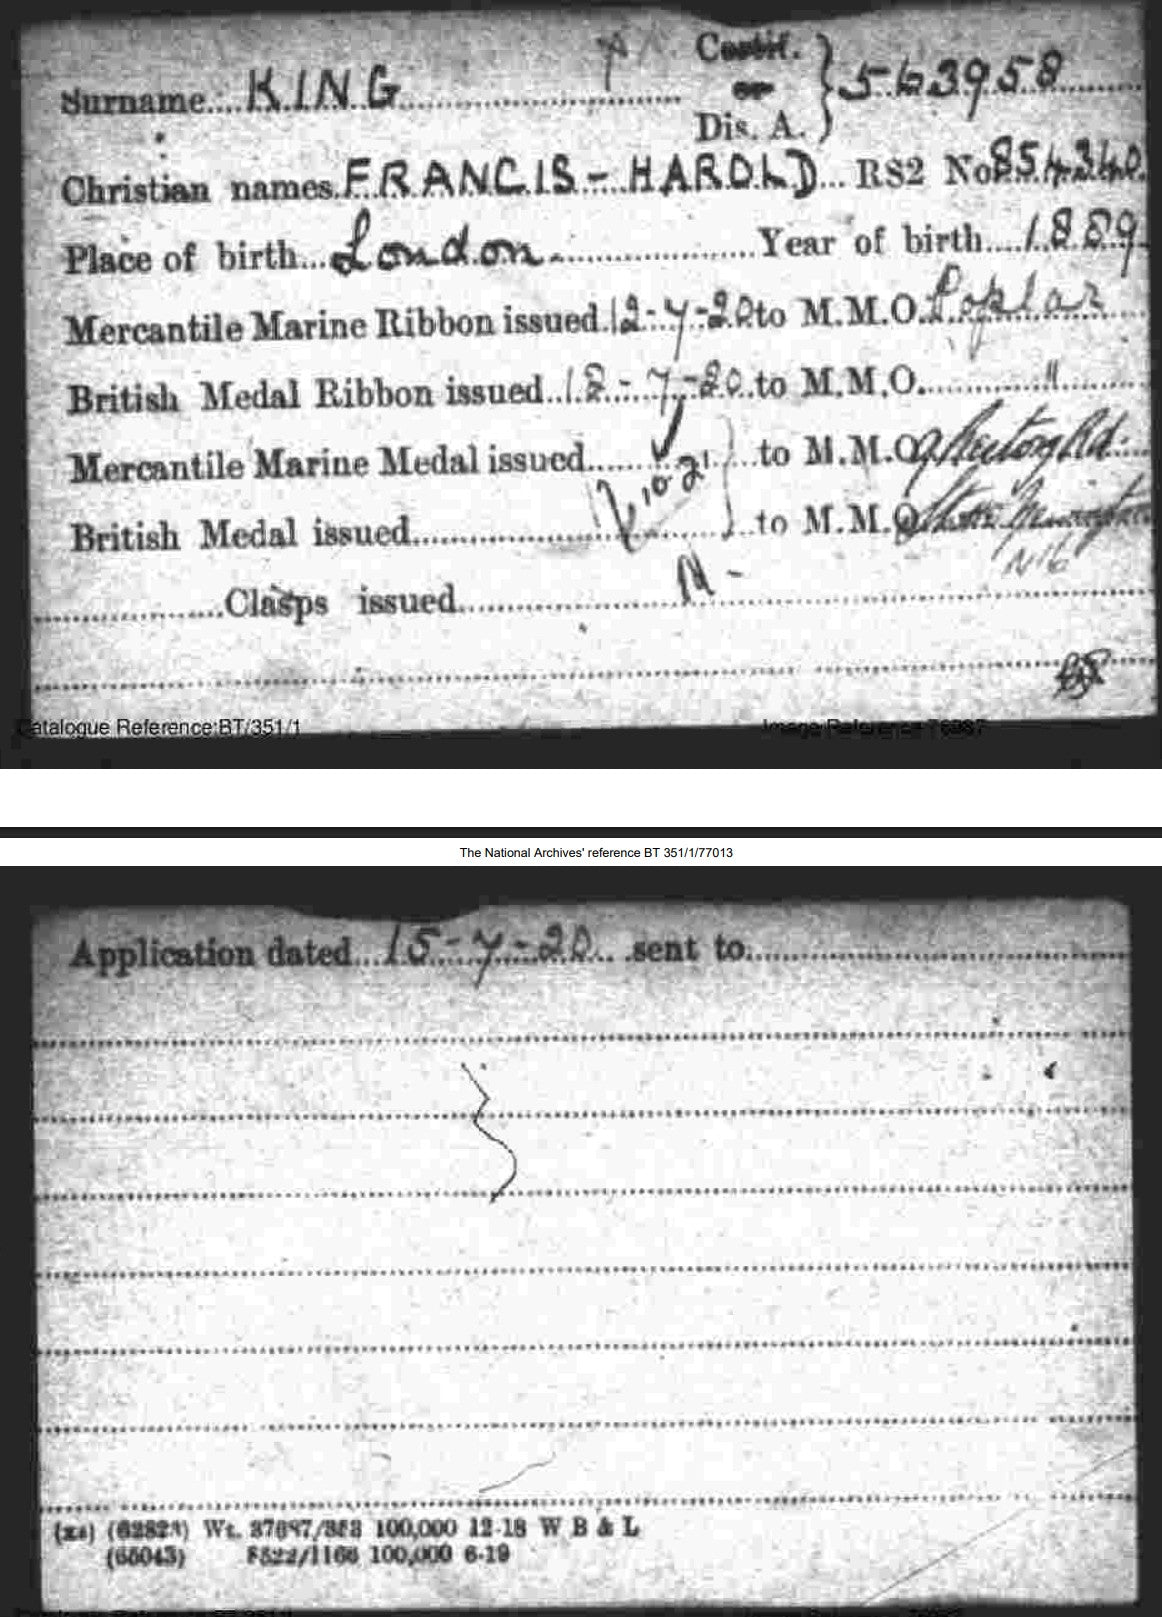 Surname....KING
Certif. or Dis. A. } 563958
Christian names FRANCIS - HAROLD RS2 No 854340
Place of birth London Year of birth 1889
Mercantile Marine Ribbon issued 12-7-20 to M.M.O. Poplar
British Medal Ribbon issued 12-7-20 to M.M.O. "
Mercantile Marine Medal issued to M.M.O. Rd.
British Medal issued 10 21 to M.M.O.
N16
Clasps issued
Catalogue Reference:BT/351/1 Image Reference:
The National Archives' reference BT 351/1/77013
Application dated 15-7-20 sent to
Wt. 100,000 12-18 W B & L
(65043) 100,000 6-19